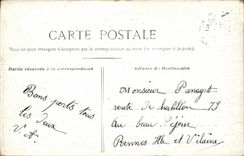 CARTE POSTALE
Tous les pays étrangers n'acceptent pas la correspondance au recto (se renseigner à la poste).
Partie réservée à la correspondance
Adresse du Destinataire
Bons ports tous
les deux
V A
Monsieur
route de 79
au beau Séjour
Rennes Ille et Vilaine